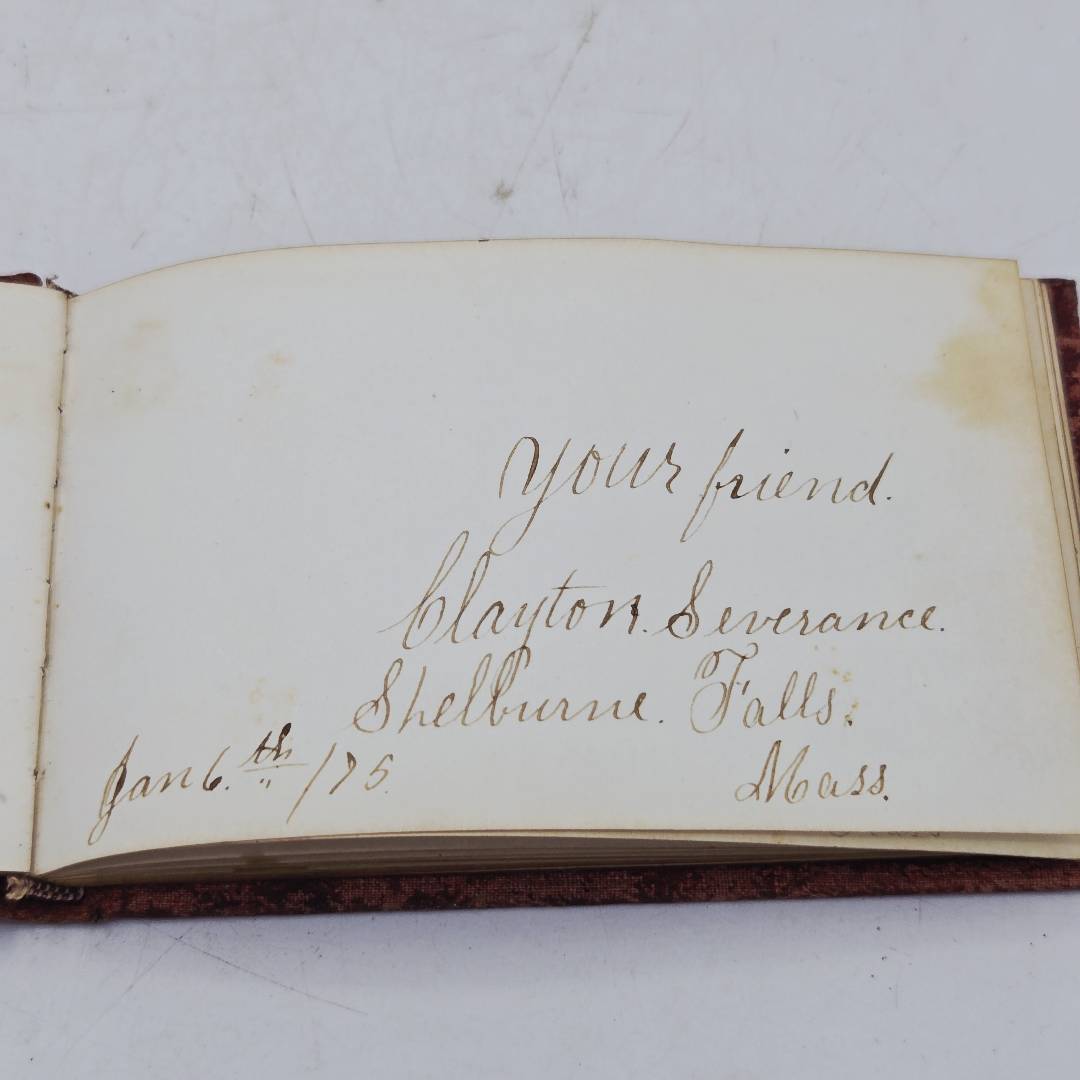 Your friend.
Clayton. Severance.
Shelburne. Falls.
Mass.
Jan 6.th /75.